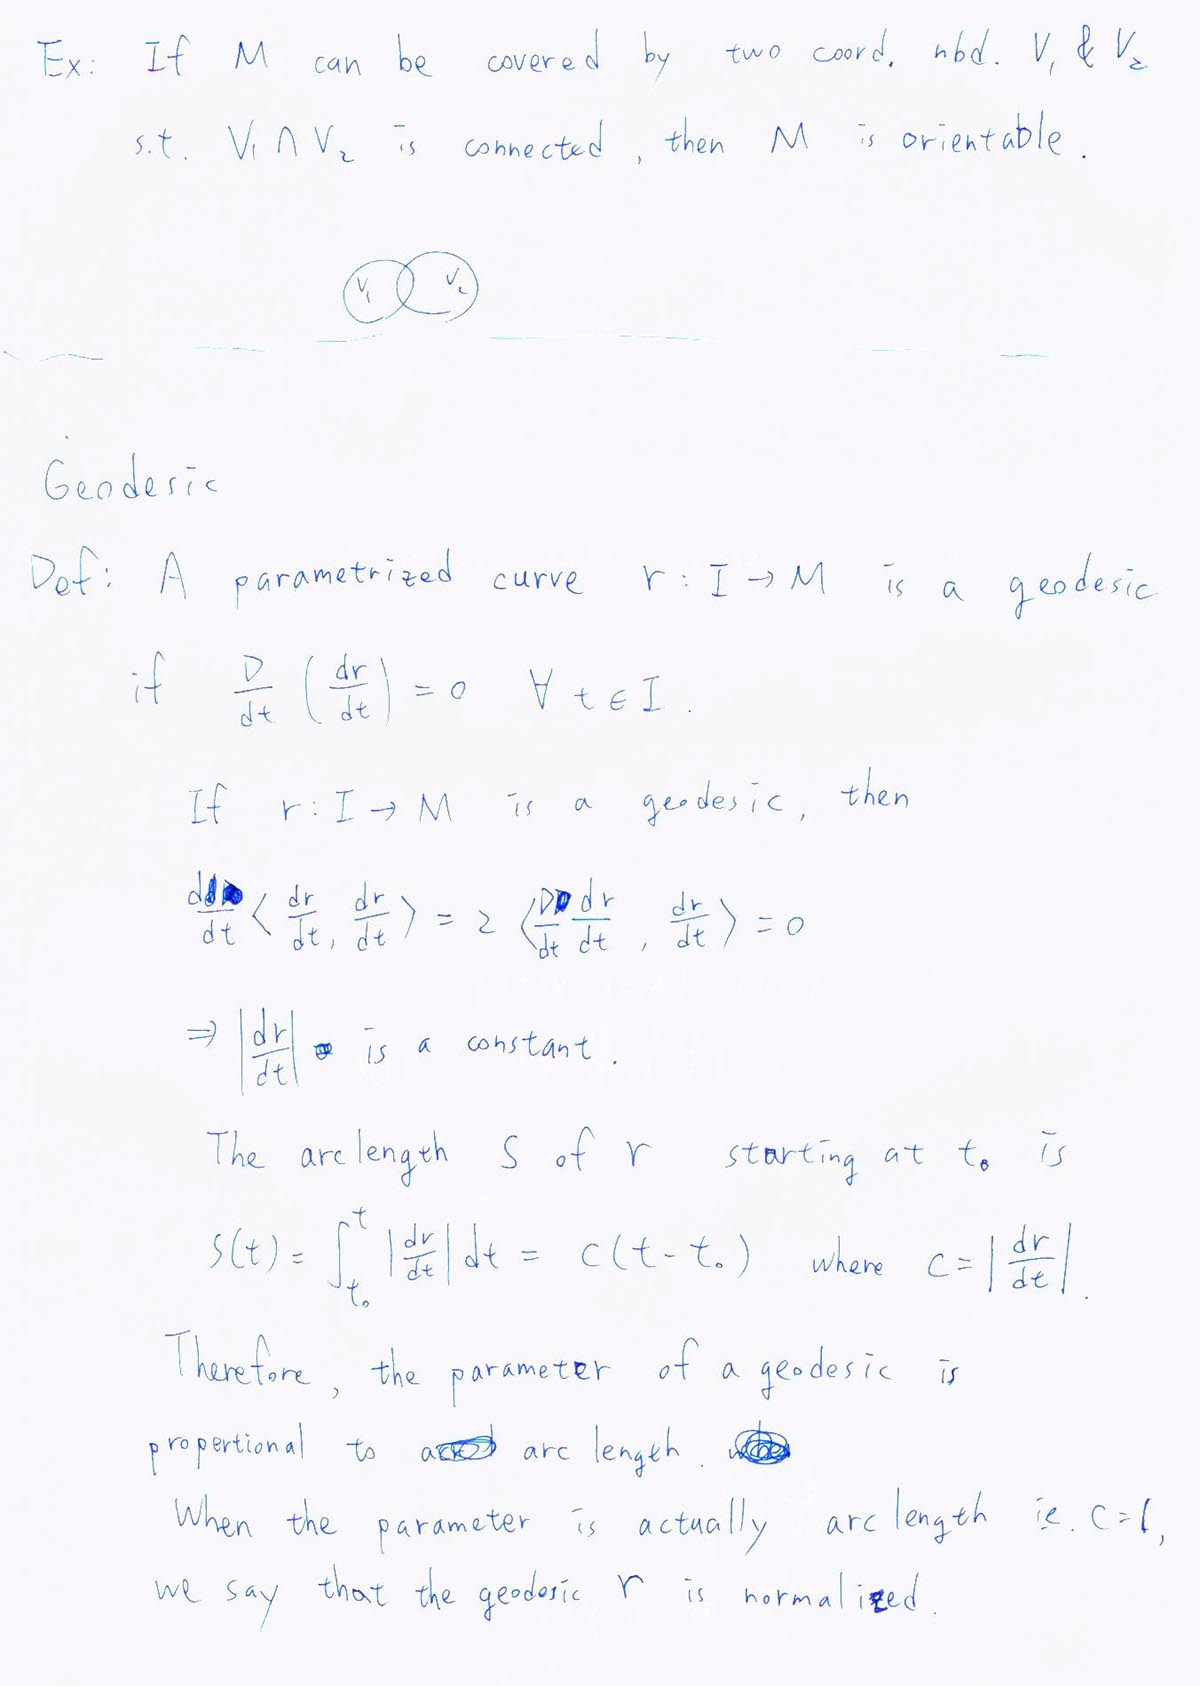 Ex: If M can be covered by two coord. nbd. V₁ & V₂
s.t. V₁ ∩ V₂ is connected, then M is orientable.
V₁ V₂
Geodesic
Def: A parametrized curve r : I → M is a geodesic
if D/dt (dr/dt) = 0 ∀ t ∈ I.
If r : I → M is a geodesic, then
d/dt ⟨dr/dt, dr/dt⟩ = 2 ⟨D/dt dr/dt, dr/dt⟩ = 0
⇒ |dr/dt| is a constant.
The arc length S of r starting at t₀ is
S(t) = ∫_{t₀}^{t} |dr/dt| dt = c(t - t₀) where c = |dr/dt|.
Therefore, the parameter of a geodesic is
propertional to arc length.
When the parameter is actually arc length ie. c=1,
we say that the geodesic r is normalized.